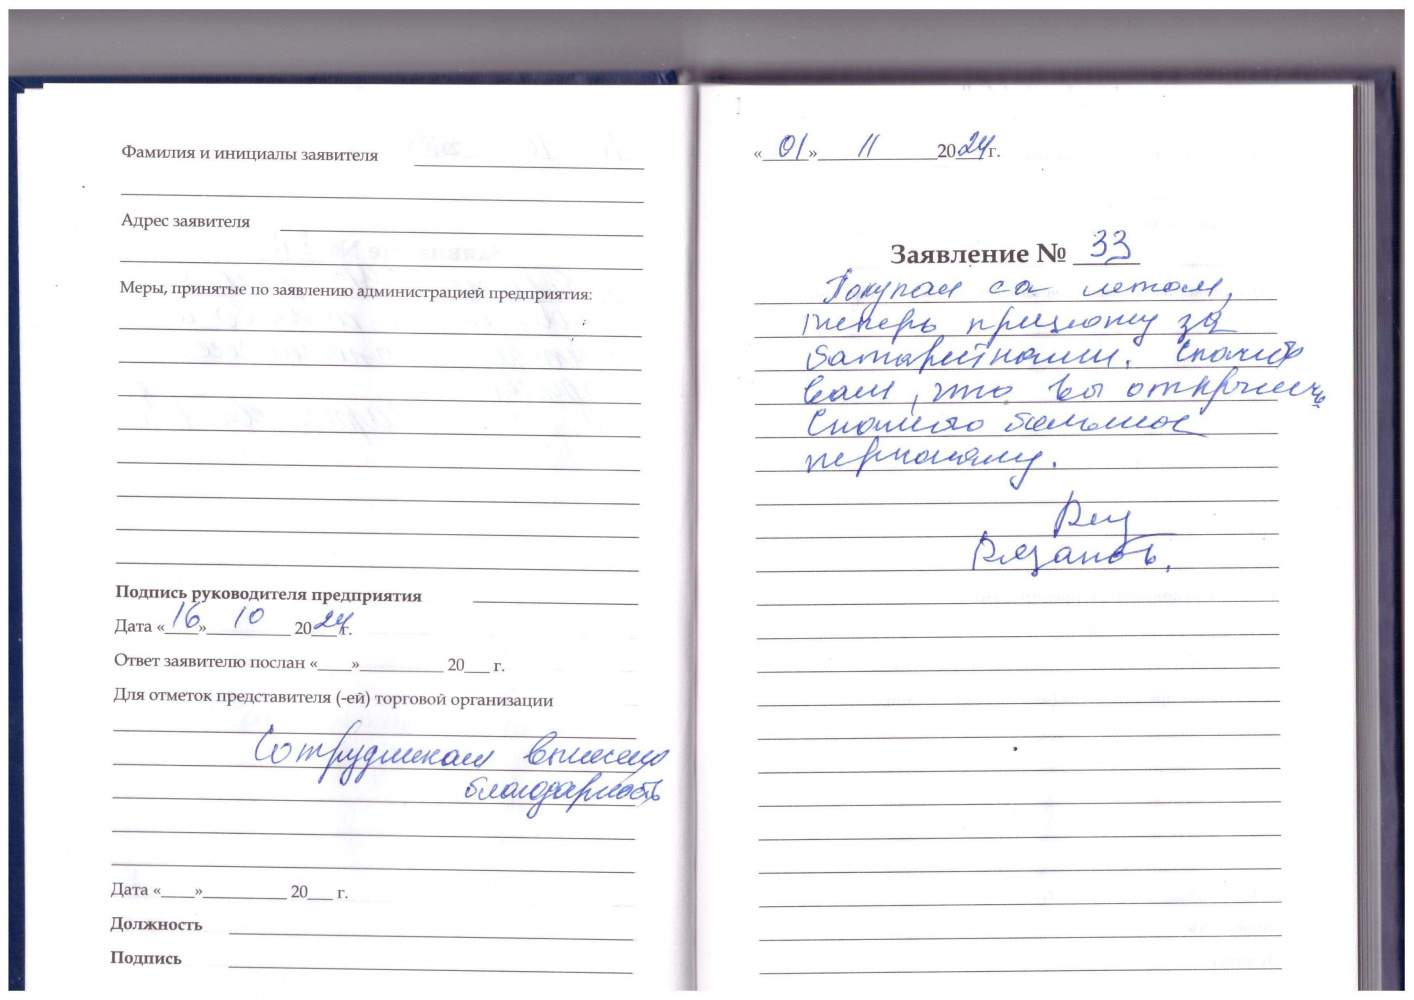 Фамилия и инициалы заявителя
Адрес заявителя
Меры, принятые по заявлению администрацией предприятия:
Подпись руководителя предприятия
Дата «16» 10 2024 г.
Ответ заявителю послан «____»__________ 20___ г.
Для отметок представителя (-ей) торговой организации
Сотрудникам вынесена
благодарность
Дата «____»__________ 20___ г.
Должность
Подпись
«01» 11 2024 г.
Заявление № 33
Покупал
теперь прихожу за
батарейками. Спасибо
вам, что вы открылись
Спасибо большое
персоналу.